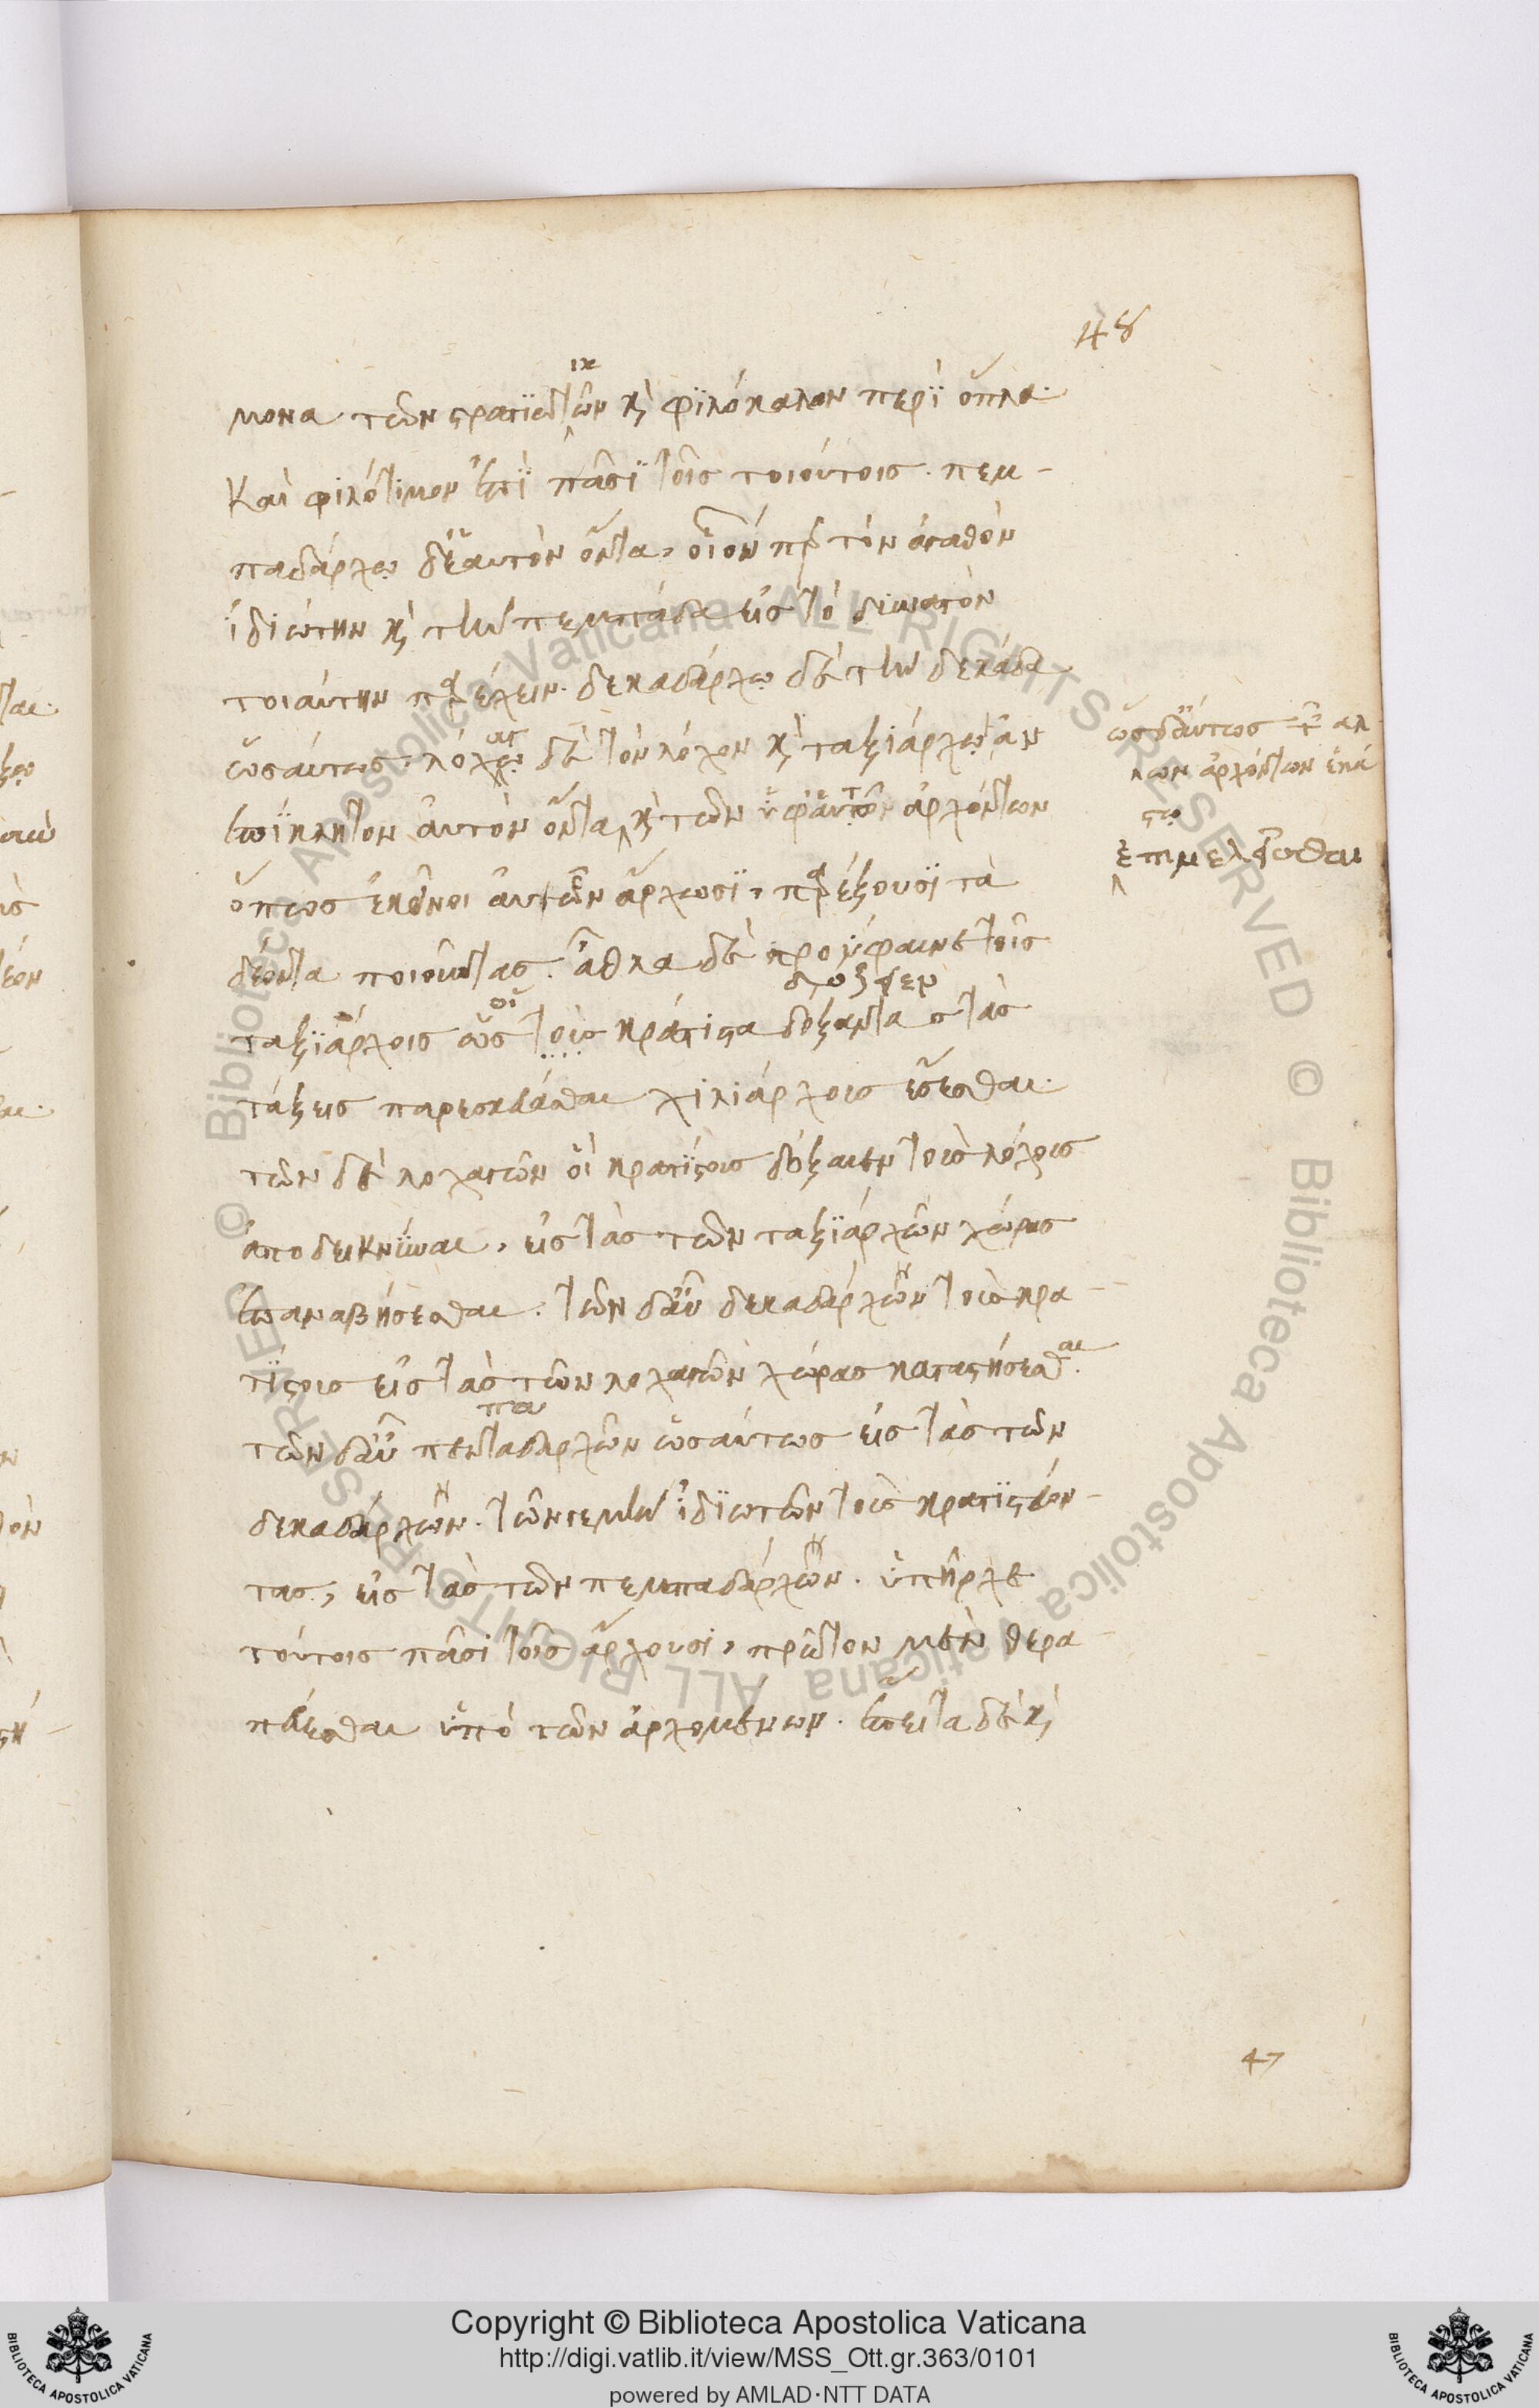 48
μονα τῶν στρατιωτικῶν καὶ φιλόκαλον περὶ ὅπλα·
καὶ φιλότιμον ἐπὶ πᾶσι τοῖς τοιούτοις· πεμ-
παδάρχῳ δὲ αὐτὸν ὄντα, οἷόνπερ τὸν ἀγαθὸν
ἰδιώτην καὶ τὴν πεμπάδα εἰς τὸ δυνατὸν
τοιαύτην παρέχειν· δεκαδάρχῳ δὲ τὴν δεκάδα
ὡσαύτως· λοχαγῷ δὲ τὸν λόχον καὶ ταξιάρχῳ ἀν
επίκλητον αὐτὸν ὄντα καὶ τῶν ὑφ' αὑτῷ ἀρχόντων
ὡς δ' αὔτως τῶν ἄλ
λων ἀρχόντων ἑκά
στῳ
ἐπιμελεῖσθαι
ὅπως ἐκεῖνοι αὐτῶν ἄρχωσι, παρέξουσι τὰ
δέοντα ποιοῦντας. ἆθλα δὲ προύφαινε τοῖς
ταξιάρχοις ὡς τοὺς κράτιστα δόξαντα τὰς
οἳ
δόξειεν
τάξεις παρεσκευάσθαι χιλιάρχοις ἔσεσθαι·
τῶν δὲ λοχαγῶν οἳ κρατίστους δόξαιεν τοὺς λόχους
ἀποδεικνύναι, εἰς τὰς τῶν ταξιάρχων χώρας
ἐπαναβήσεσθαι. τῶν δ' αὖ δεκαδάρχων τοὺς κρα-
τίστους εἰς τὰς τῶν λοχαγῶν χώρας καταστήσεσθαι.
πα
τῶν δ' αὖ πενταδάρχων ὡσαύτως εἰς τὰς τῶν
δεκαδάρχων. τῶν γε μὴν ἰδιωτῶν τοὺς κρατιστεύον-
τας, εἰς τὰς τῶν πεμπαδάρχων. ὑπῆρχε
τούτοις πᾶσι τοῖς ἄρχουσι, πρῶτον μὲν θερα-
πεύεσθαι ὑπὸ τῶν ἀρχομένων. ἔπειτα δὲ καὶ
47
Copyright © Biblioteca Apostolica Vaticana
http://digi.vatlib.it/view/MSS_Ott.gr.363/0101
powered by AMLAD·NTT DATA